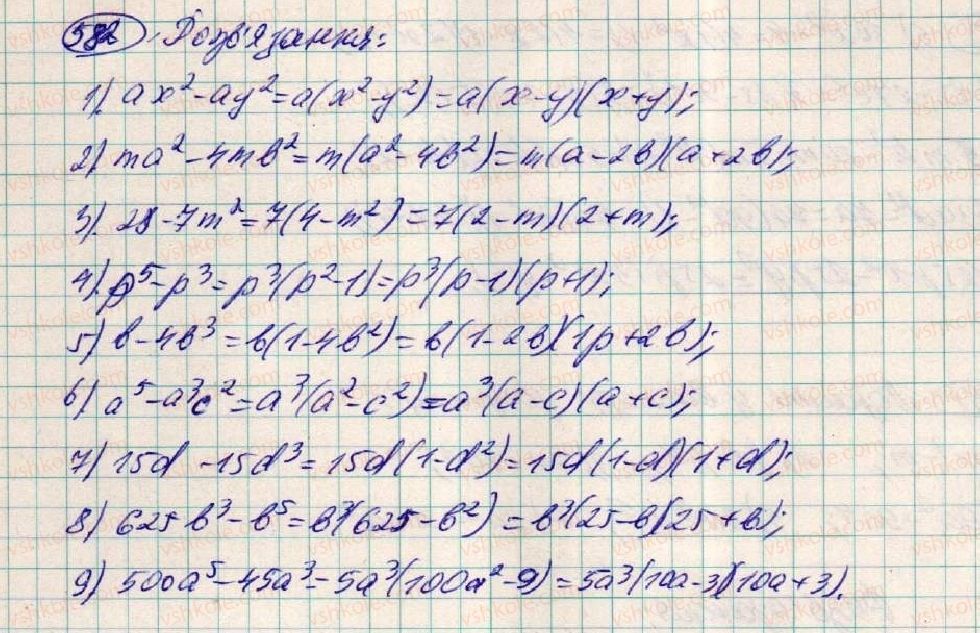 582 Розв'язання:
1) ax²-ay²=a(x²-y²)=a(x-y)(x+y);
2) ma²-4mb²=m(a²-4b²)=m(a-2b)(a+2b);
3) 28-7m²=7(4-m²)=7(2-m)(2+m);
4) p⁵-p³=p³(p²-1)=p³(p-1)(p+1);
5) b-4b³=b(1-4b²)=b(1-2b)(1p+2b);
6) a⁵-a³c²=a³(a²-c²)=a³(a-c)(a+c);
7) 15d-15d³=15d(1-d²)=15d(1-d)(1+d);
8) 625b³-b⁵=b³(625-b²)=b³(25-b)(25+b);
9) 500a⁵-45a³=5a³(100a²-9)=5a³(10a-3)(10a+3).